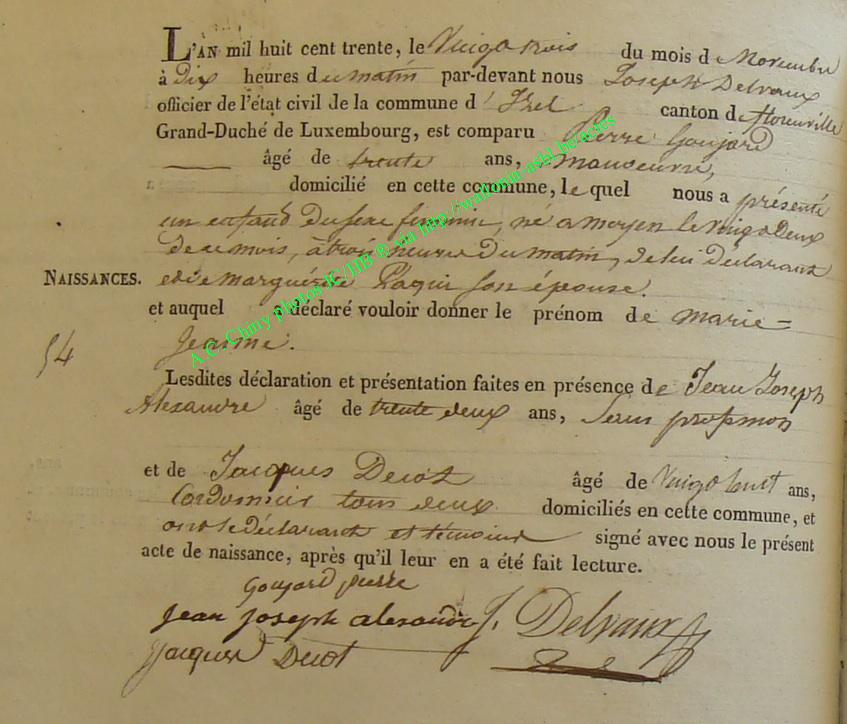 L'AN mil huit cent trente, le Vingt trois du mois de Novembre
à Dix heures du matin par-devant nous Joseph Delvaux
officier de l'état civil de la commune d'Izel canton de florenville
Grand-Duché de Luxembourg, est comparu Pierre Goujard
âgé de trente ans, manoeuvre,
domicilié en cette commune, le quel nous a présenté
un enfant du sexe feminin, né a moyen le vingt deux
de ce mois, à trois heures du matin, de lui declarant
NAISSANCES. et de marguérite son épouse.
et auquel a déclaré vouloir donner le prénom de marie=
54 Jeanne.
Lesdites déclaration et présentation faites en présence de Jean Joseph
Alexandre âgé de trente deux ans, Sans profession
et de Jacques Decot âgé de Vingt huit ans,
Cordonnier tous deux domiciliés en cette commune, et
ont le déclarant et témoins signé avec nous le présent
acte de naissance, après qu'il leur en a été fait lecture.
goujard pierre
jean joseph alexandre J. Delvaux
jacques Decot
A.C. Chiny photos IC/IJB ® via http://wallonia-asbl.be/actes